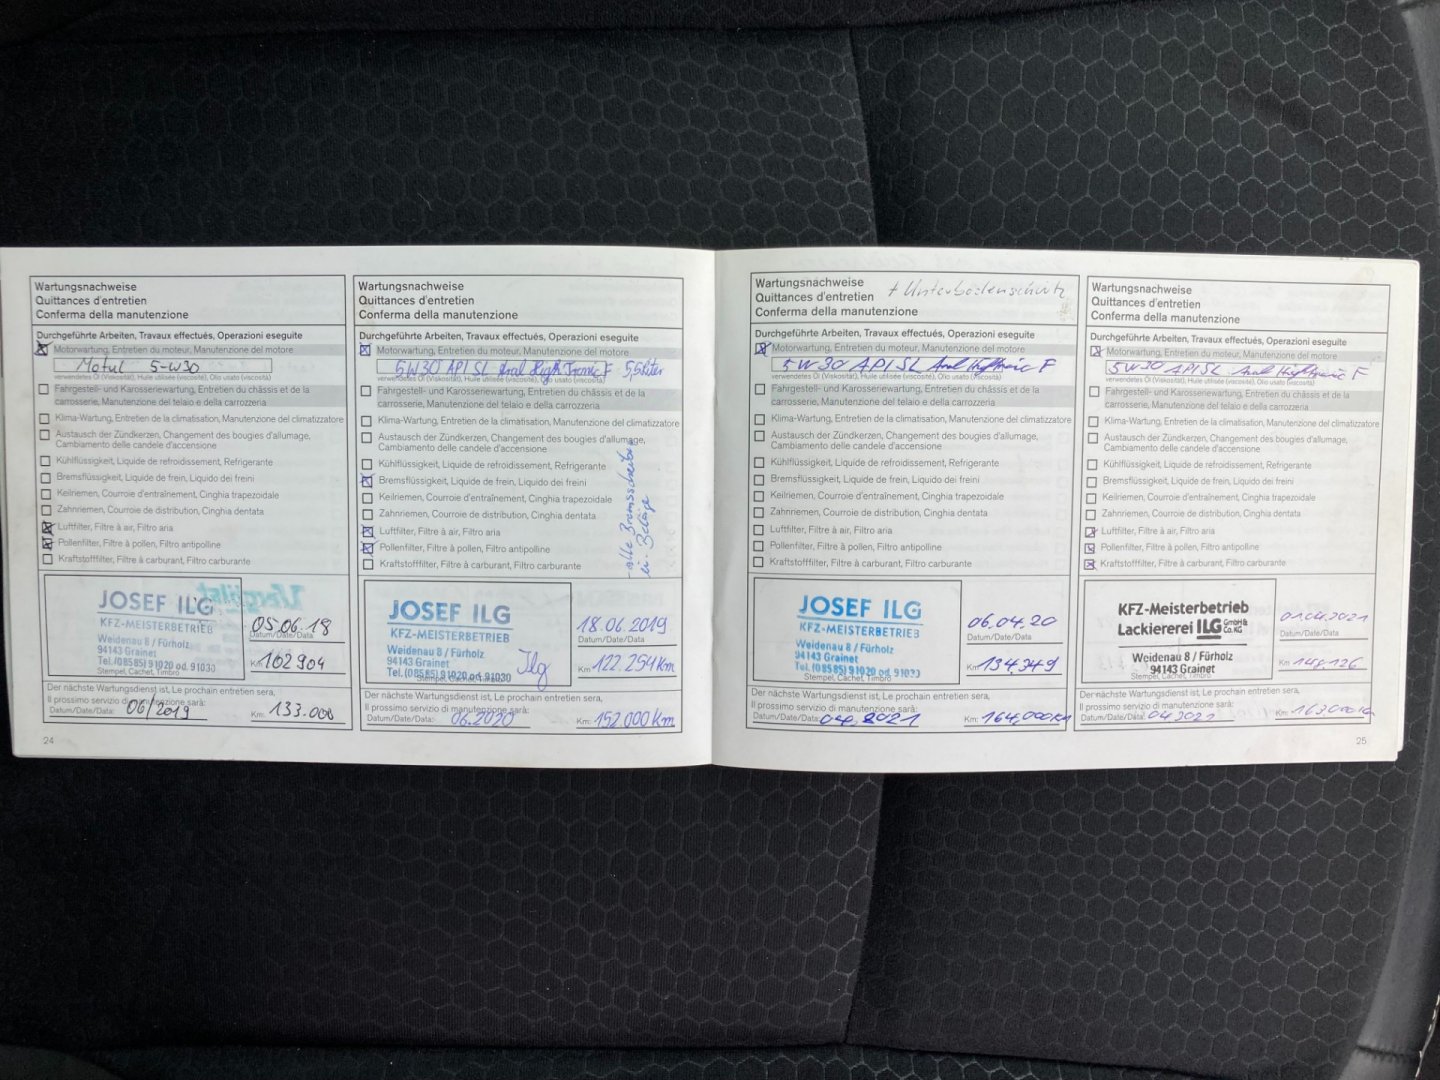 Wartungsnachweise
Quittances d'entretien
Conferma della manutenzione
Durchgeführte Arbeiten, Travaux effectués, Operazioni eseguite
Motorwartung, Entretien du moteur, Manutenzione del motore
Motul 5-W30
verwendetes Öl (Viskosität), Huile utilisée (viscosité), Olio usato (viscosità)
Fahrgestell- und Karosseriewartung, Entretien du châssis et de la
carrosserie, Manutenzione del telaio e della carrozzeria
Klima-Wartung, Entretien de la climatisation, Manutenzione del climatizzatore
Austausch der Zündkerzen, Changement des bougies d'allumage,
Cambiamento delle candele d'accensione
Kühlflüssigkeit, Liquide de refroidissement, Refrigerante
Bremsflüssigkeit, Liquide de frein, Liquido dei freini
Keilriemen, Courroie d'entraînement, Cinghia trapezoidale
Zahnriemen, Courroie de distribution, Cinghia dentata
Luftfilter, Filtre à air, Filtro aria
Pollenfilter, Filtre à pollen, Filtro antipolline
Kraftstofffilter, Filtre à carburant, Filtro carburante
JOSEF ILG
KFZ-MEISTERBETRIEB
Weidenau 8 / Fürholz
94143 Grainet
Tel. (08585) 91020 od. 91030
Stempel, Cachet, Timbro
05.06.18
Datum/Date/Data
Km 102904
Der nächste Wartungsdienst ist, Le prochain entretien sera,
Il prossimo servizio di manutenzione sarà:
Datum/Date/Data: 06/2019 Km: 133.000
24
Wartungsnachweise
Quittances d'entretien
Conferma della manutenzione
Durchgeführte Arbeiten, Travaux effectués, Operazioni eseguite
Motorwartung, Entretien du moteur, Manutenzione del motore
5W30 API SL Aral High Tronic F 5,5liter
verwendetes Öl (Viskosität), Huile utilisée (viscosité), Olio usato (viscosità)
Fahrgestell- und Karosseriewartung, Entretien du châssis et de la
carrosserie, Manutenzione del telaio e della carrozzeria
Klima-Wartung, Entretien de la climatisation, Manutenzione del climatizzatore
Austausch der Zündkerzen, Changement des bougies d'allumage,
Cambiamento delle candele d'accensione
Kühlflüssigkeit, Liquide de refroidissement, Refrigerante
Bremsflüssigkeit, Liquide de frein, Liquido dei freini
Keilriemen, Courroie d'entraînement, Cinghia trapezoidale
Zahnriemen, Courroie de distribution, Cinghia dentata
Luftfilter, Filtre à air, Filtro aria
Pollenfilter, Filtre à pollen, Filtro antipolline
Kraftstofffilter, Filtre à carburant, Filtro carburante
- alle Bremsscheiben
Beläge
JOSEF ILG
KFZ-MEISTERBETRIEB
Weidenau 8 / Fürholz
94143 Grainet
Tel. (08585) 91020 od. 91030
Stempel, Cachet, Timbro
Ilg
18.06.2019
Datum/Date/Data
Km 122.254km
Der nächste Wartungsdienst ist, Le prochain entretien sera,
Il prossimo servizio di manutenzione sarà:
Datum/Date/Data: 06.2020 Km: 152.000km
Wartungsnachweise
Quittances d'entretien + Unterbodenschutz
Conferma della manutenzione
Durchgeführte Arbeiten, Travaux effectués, Operazioni eseguite
Motorwartung, Entretien du moteur, Manutenzione del motore
5W30 API SL Aral Hightronic F
verwendetes Öl (Viskosität), Huile utilisée (viscosité), Olio usato (viscosità)
Fahrgestell- und Karosseriewartung, Entretien du châssis et de la
carrosserie, Manutenzione del telaio e della carrozzeria
Klima-Wartung, Entretien de la climatisation, Manutenzione del climatizzatore
Austausch der Zündkerzen, Changement des bougies d'allumage,
Cambiamento delle candele d'accensione
Kühlflüssigkeit, Liquide de refroidissement, Refrigerante
Bremsflüssigkeit, Liquide de frein, Liquido dei freini
Keilriemen, Courroie d'entraînement, Cinghia trapezoidale
Zahnriemen, Courroie de distribution, Cinghia dentata
Luftfilter, Filtre à air, Filtro aria
Pollenfilter, Filtre à pollen, Filtro antipolline
Kraftstofffilter, Filtre à carburant, Filtro carburante
JOSEF ILG
KFZ-MEISTERBETRIEB
Weidenau 8 / Fürholz
94143 Grainet
Tel. (08585) 91020 od. 91030
Stempel, Cachet, Timbro
06.04.20
Datum/Date/Data
Km 134.349
Der nächste Wartungsdienst ist, Le prochain entretien sera,
Il prossimo servizio di manutenzione sarà:
Datum/Date/Data: 04.2021 Km: 164.000km
Wartungsnachweise
Quittances d'entretien
Conferma della manutenzione
Durchgeführte Arbeiten, Travaux effectués, Operazioni eseguite
Motorwartung, Entretien du moteur, Manutenzione del motore
5W30 API SL Aral Hightronic F
verwendetes Öl (Viskosität), Huile utilisée (viscosité), Olio usato (viscosità)
Fahrgestell- und Karosseriewartung, Entretien du châssis et de la
carrosserie, Manutenzione del telaio e della carrozzeria
Klima-Wartung, Entretien de la climatisation, Manutenzione del climatizzatore
Austausch der Zündkerzen, Changement des bougies d'allumage,
Cambiamento delle candele d'accensione
Kühlflüssigkeit, Liquide de refroidissement, Refrigerante
Bremsflüssigkeit, Liquide de frein, Liquido dei freini
Keilriemen, Courroie d'entraînement, Cinghia trapezoidale
Zahnriemen, Courroie de distribution, Cinghia dentata
Luftfilter, Filtre à air, Filtro aria
Pollenfilter, Filtre à pollen, Filtro antipolline
Kraftstofffilter, Filtre à carburant, Filtro carburante
KFZ-Meisterbetrieb
Lackiererei ILG GmbH & Co. KG
Weidenau 8 / Fürholz
94143 Grainet
Stempel, Cachet, Timbro
01.04.2021
Datum/Date/Data
Km 148.126
Der nächste Wartungsdienst ist, Le prochain entretien sera,
Il prossimo servizio di manutenzione sarà:
Datum/Date/Data: 04.2021 Km:
25